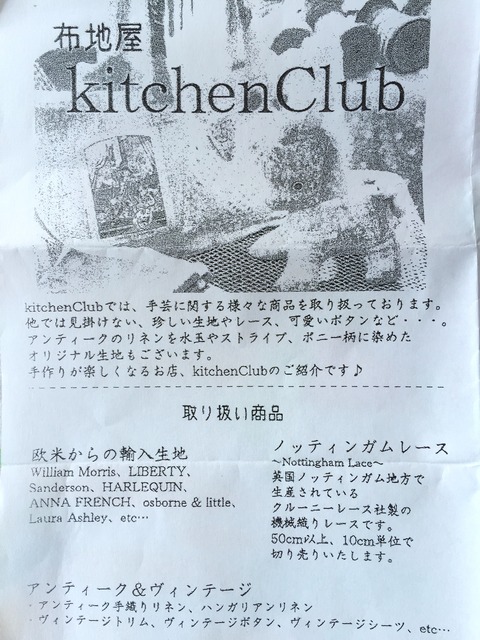 布地屋
kitchenClub
kitchenClubでは、手芸に関する様々な商品を取り扱っております。
他では見掛けない、珍しい生地やレース、可愛いボタンなど・・・・。
アンティークのリネンを水玉やストライプ、ポニー柄に染めた
オリジナル生地もございます。
手作りが楽しくなるお店、kitchenClubのご紹介です♪
取り扱い商品
欧米からの輸入生地
William Morris、LIBERTY、
Sanderson、HARLEQUIN、
ANNA FRENCH、osborne & little、
Laura Ashley、etc…
ノッティンガムレース
～Nottingham Lace～
英国ノッティンガム地方で
生産されている
クルーニーレース社製の
機械織りレースです。
50cm以上、10cm単位で
切り売りいたします。
アンティーク＆ヴィンテージ
・アンティーク手織りリネン、ハンガリアンリネン
・ヴィンテージトリム、ヴィンテージボタン、ヴィンテージシーツ、etc…